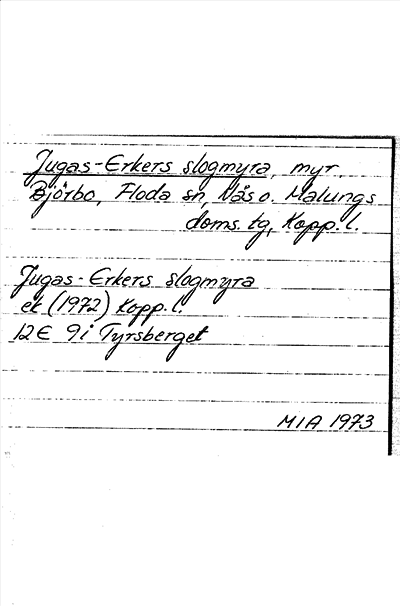 Jugas-Erkers slogmyra, myr.
Björbo, Floda sn, Nås o. Malungs
doms. tg, Kopp. l.
Jugas-Erkers slogmyra
ek (1972) Kopp. l.
12E 9i Tyrsberget
MIA 1973